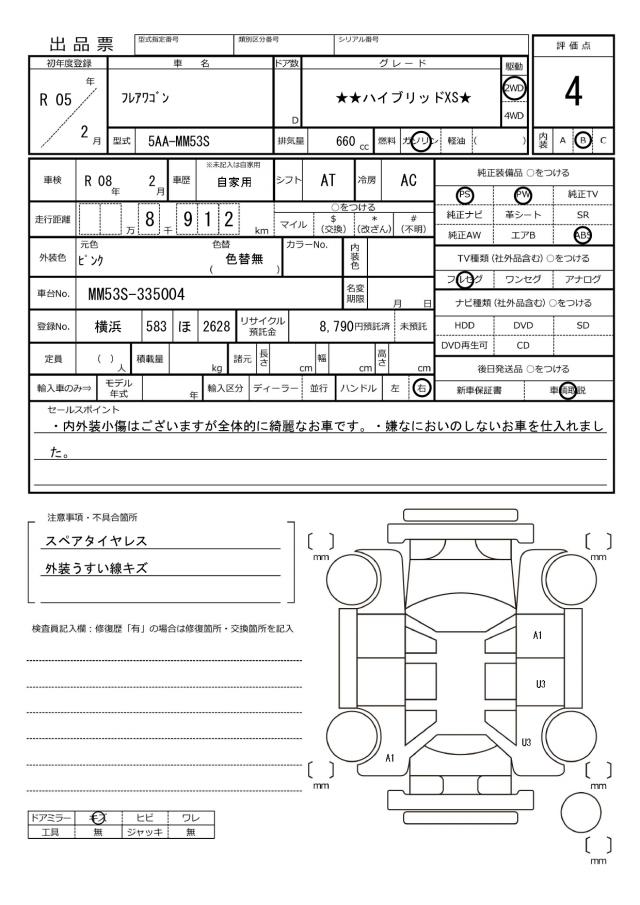 出品票
型式指定番号 類別区分番号 シリアル番号
評価点
初年度登録 車名 ドア数 グレード 駆動
R 05 年 2 月
フレアワゴン
D
★★ハイブリッドXS★
2WD
4WD
4
型式 5AA-MM53S 排気量 660 cc 燃料 ガソリン 軽油 ( )
内装 A B C
車検 R 08 年 2 月 車歴 ※未記入は自家用 自家用 シフト AT 冷房 AC
純正装備品 ○をつける
PS PW 純正TV
純正ナビ 革シート SR
純正AW エアB ABS
走行距離 万 8 千 9 1 2 km
○をつける
マイル $(交換) *(改ざん) #(不明)
外装色 元色 ピンク 色替 ( 色替無 ) カラーNo. 内装色
TV種類(社外品含む)○をつける
フルセグ ワンセグ アナログ
車台No. MM53S-335004 名変期限 月 日
ナビ種類(社外品含む)○をつける
HDD DVD SD
DVD再生可 CD
登録No. 横浜 583 ほ 2628 リサイクル預託金 8,790円預託済 未預託
定員 ( ) 人 積載量 kg 諸元 長さ cm 幅 cm 高さ cm
後日発送品 ○をつける
新車保証書 車輌取説
輸入車のみ⇒ モデル年式 年 輸入区分 ディーラー 並行 ハンドル 左 右
セールスポイント
・内外装小傷はございますが全体的に綺麗なお車です。・嫌なにおいのしないお車を仕入れまし
た。
注意事項・不具合箇所
スペアタイヤレス
外装うすい線キズ
検査員記入欄：修復歴「有」の場合は修復箇所・交換箇所を記入
〔 〕mm
〔 〕mm
A1
U3
U3
A1
〔 〕mm
〔 〕mm
〔 〕mm
ドアミラー キズ ヒビ ワレ
工具 無 ジャッキ 無